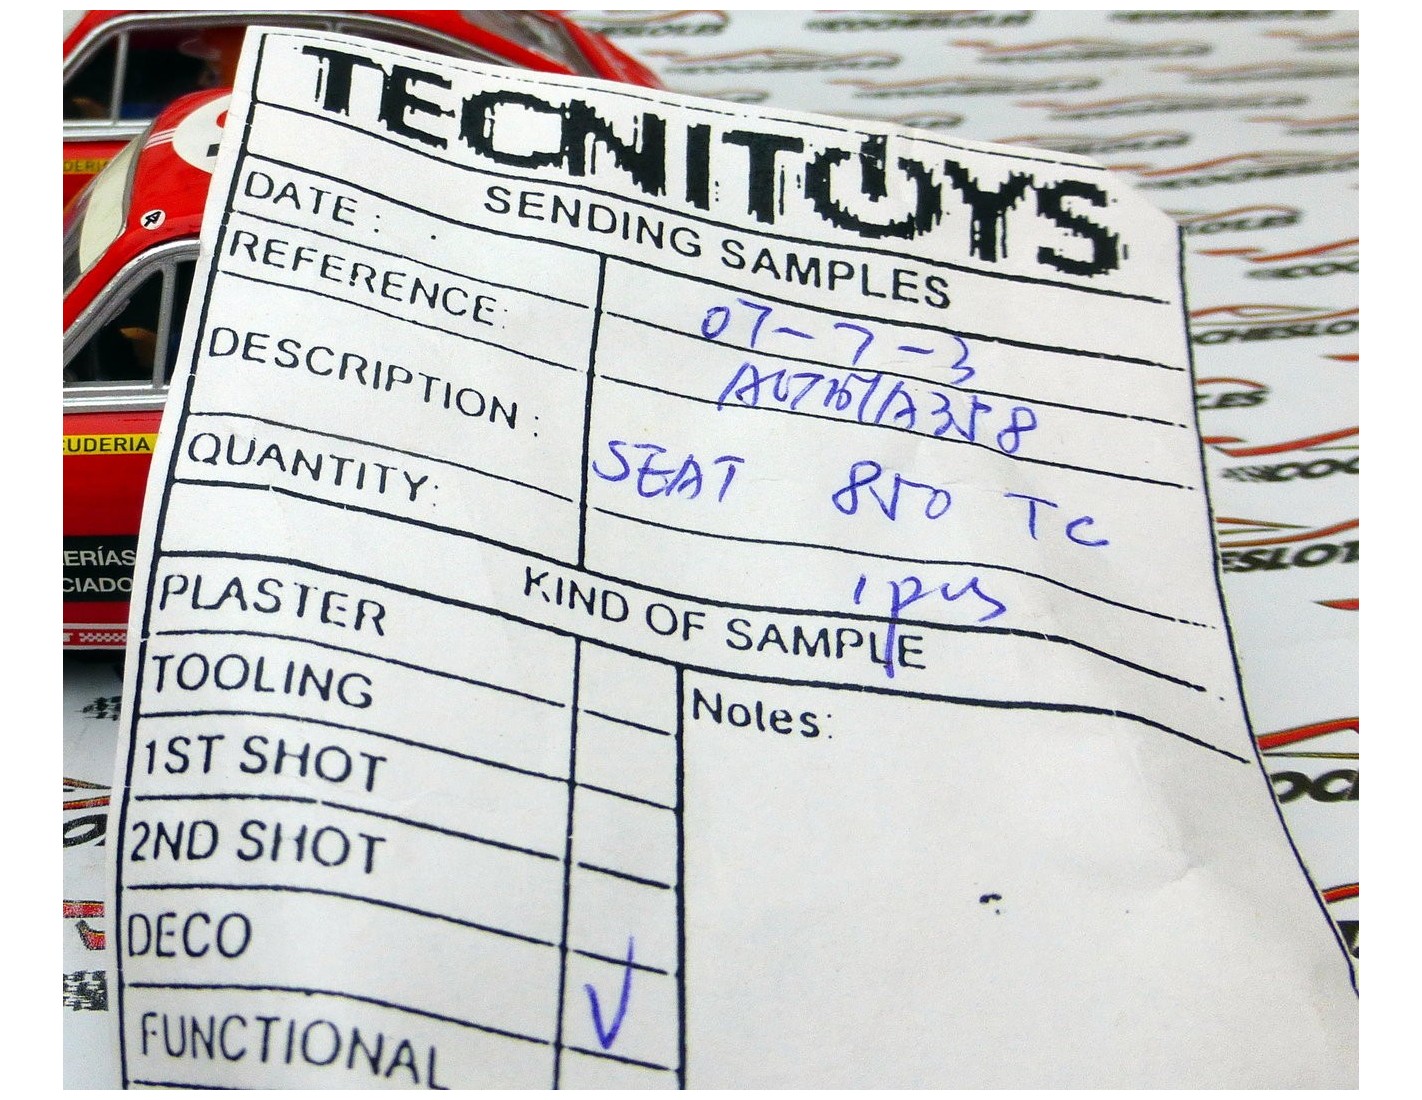 TECNITOYS
SENDING SAMPLES
DATE : 07-7-3
REFERENCE:
DESCRIPTION : SEAT 850 TC
QUANTITY: 1 pcs
KIND OF SAMPLE
PLASTER
TOOLING
Notes:
1ST SHOT
2ND SHOT
DECO
FUNCTIONAL
CUDERIA
ERÍAS
CIADO